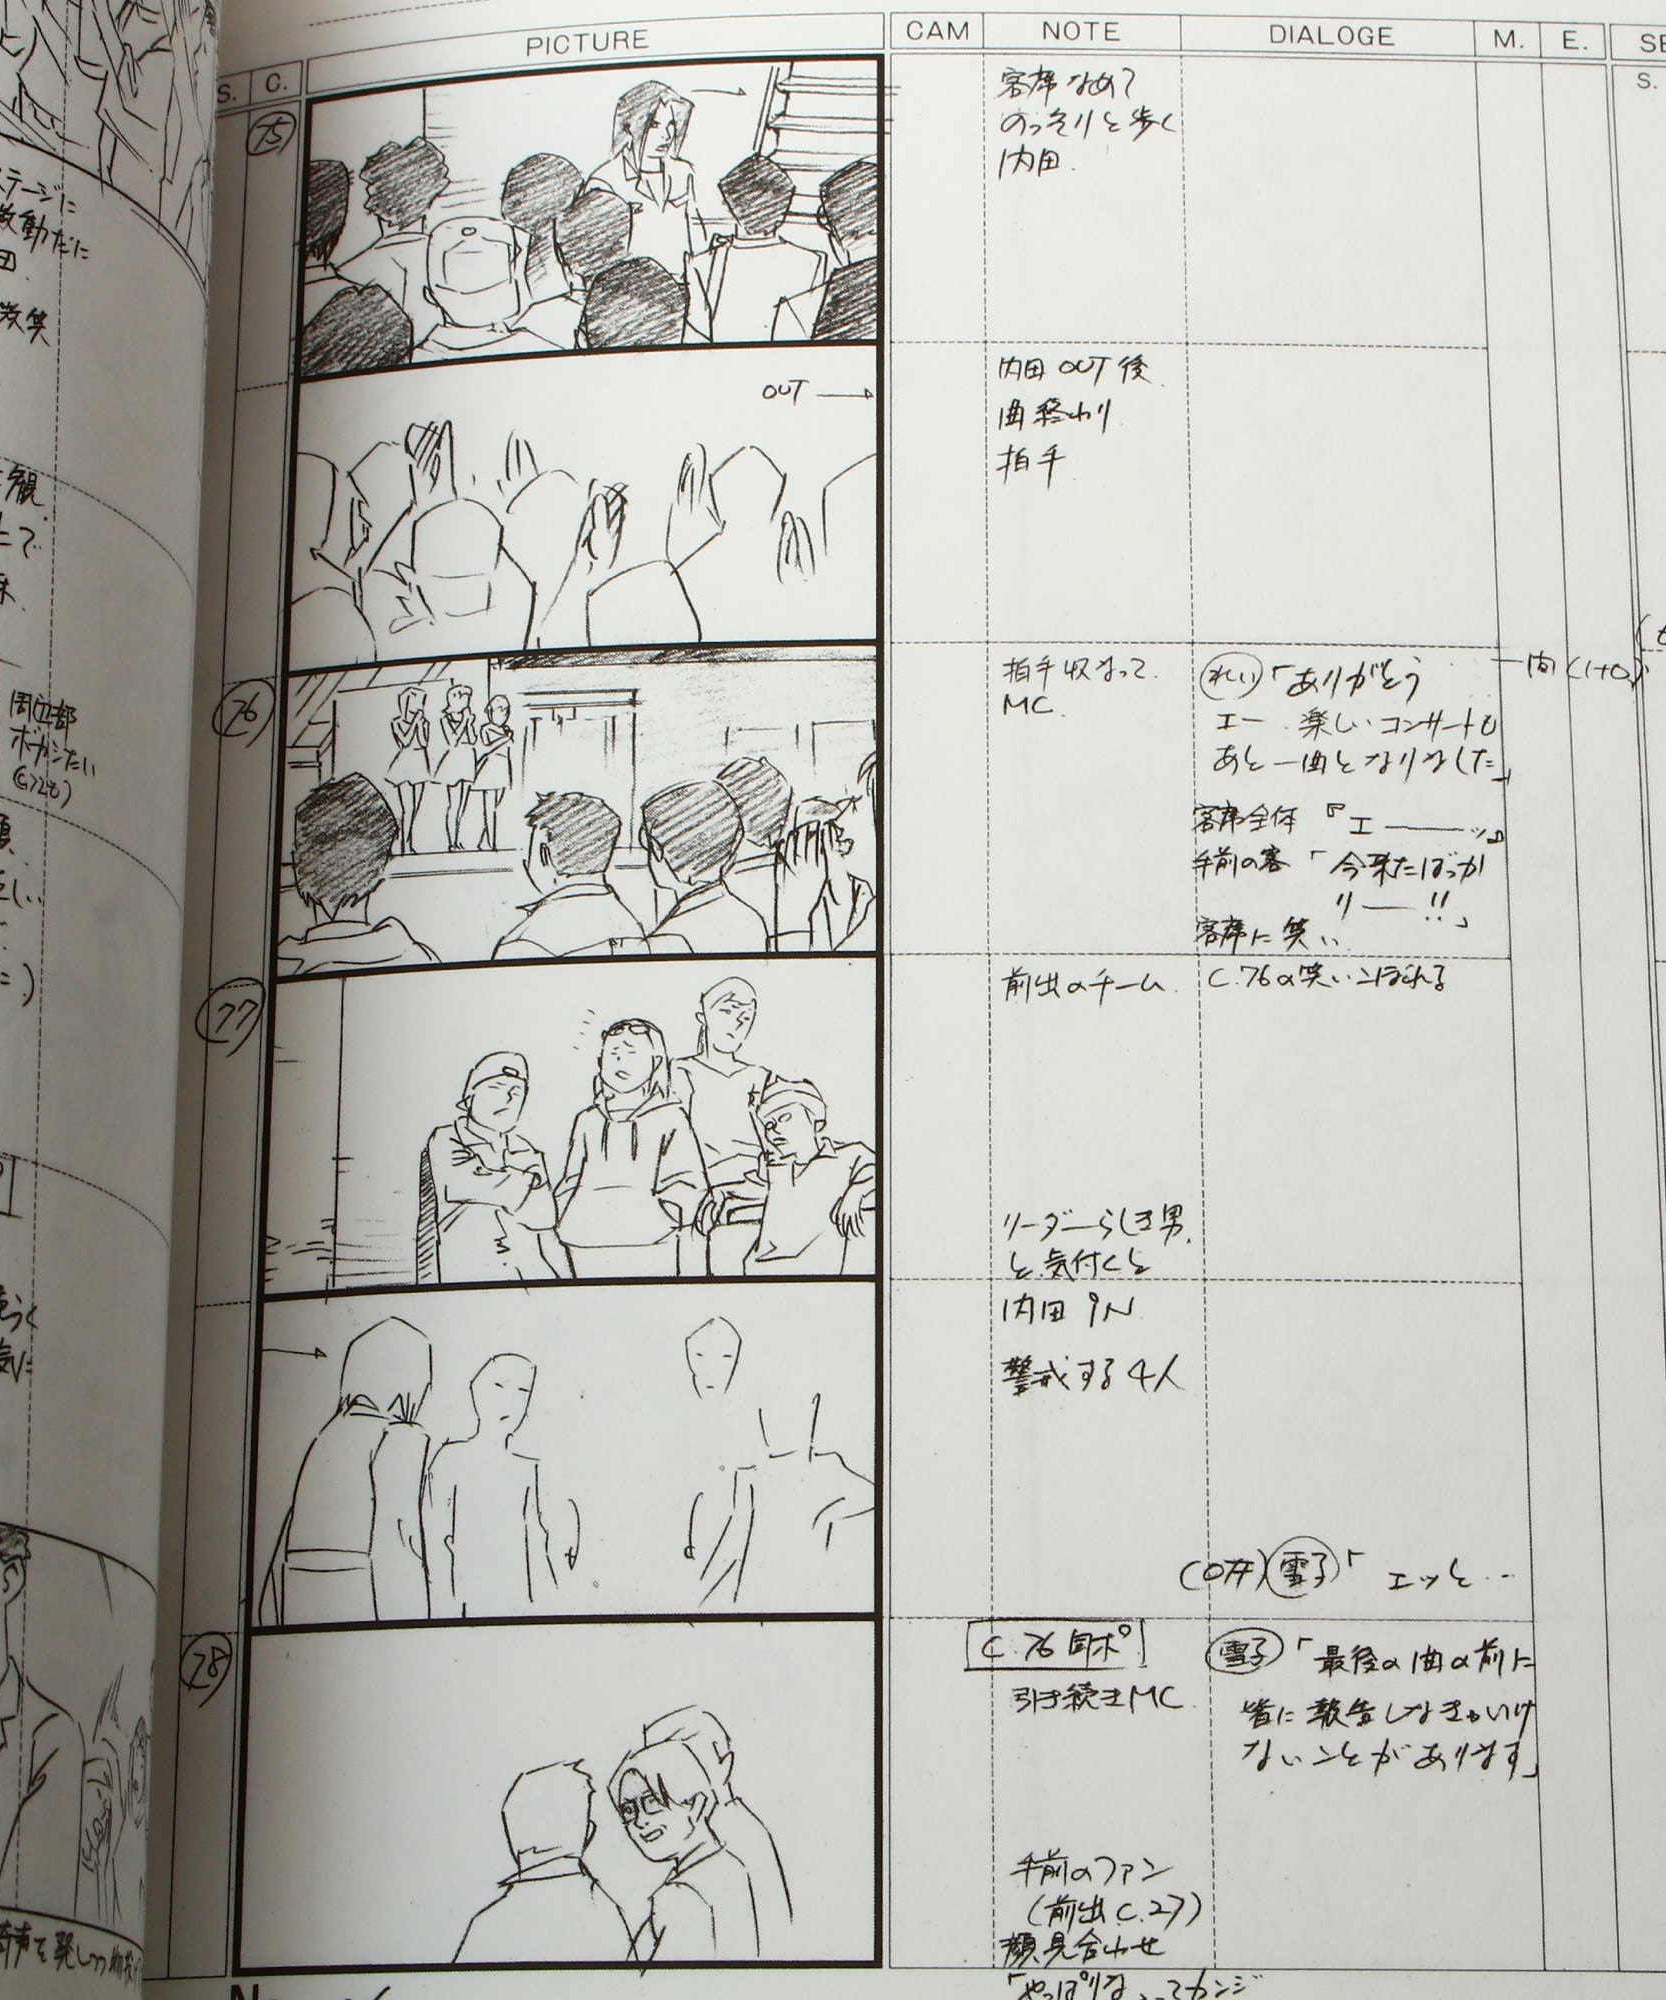 PICTURE
CAM
NOTE
DIALOGE
M.
E.
SE
S.
C.
S.
75
客席なめて
のっそりと歩く
内田.
OUT
内田 OUT 後.
曲終わり.
拍手.
76
拍手収まって.
MC.
れい「ありがとう
エー. 楽しいコンサートも
あと一曲となりました」
間(1+0)
客席全体『エ――ッ』
手前の客「今来たばっか
リ――!!」
客席に笑い
77
前出のチーム.
C.76の笑いこぼれる
リーダーらしき男.
と気付くと
内田 IN
警戒する4人
(OFF) 雪子「エッと‥
78
C.76 同ポ
引き続きMC
雪子「最後の曲の前に
皆に報告しなきゃいけ
ないことがあります」
手前のファン
(前出 C.27)
顔見合わせ
「やっぱりな」ってカンジ
ステージに
微動だに
田.
微笑
観
上で
周辺部
ボカシたい
声を発しつつ